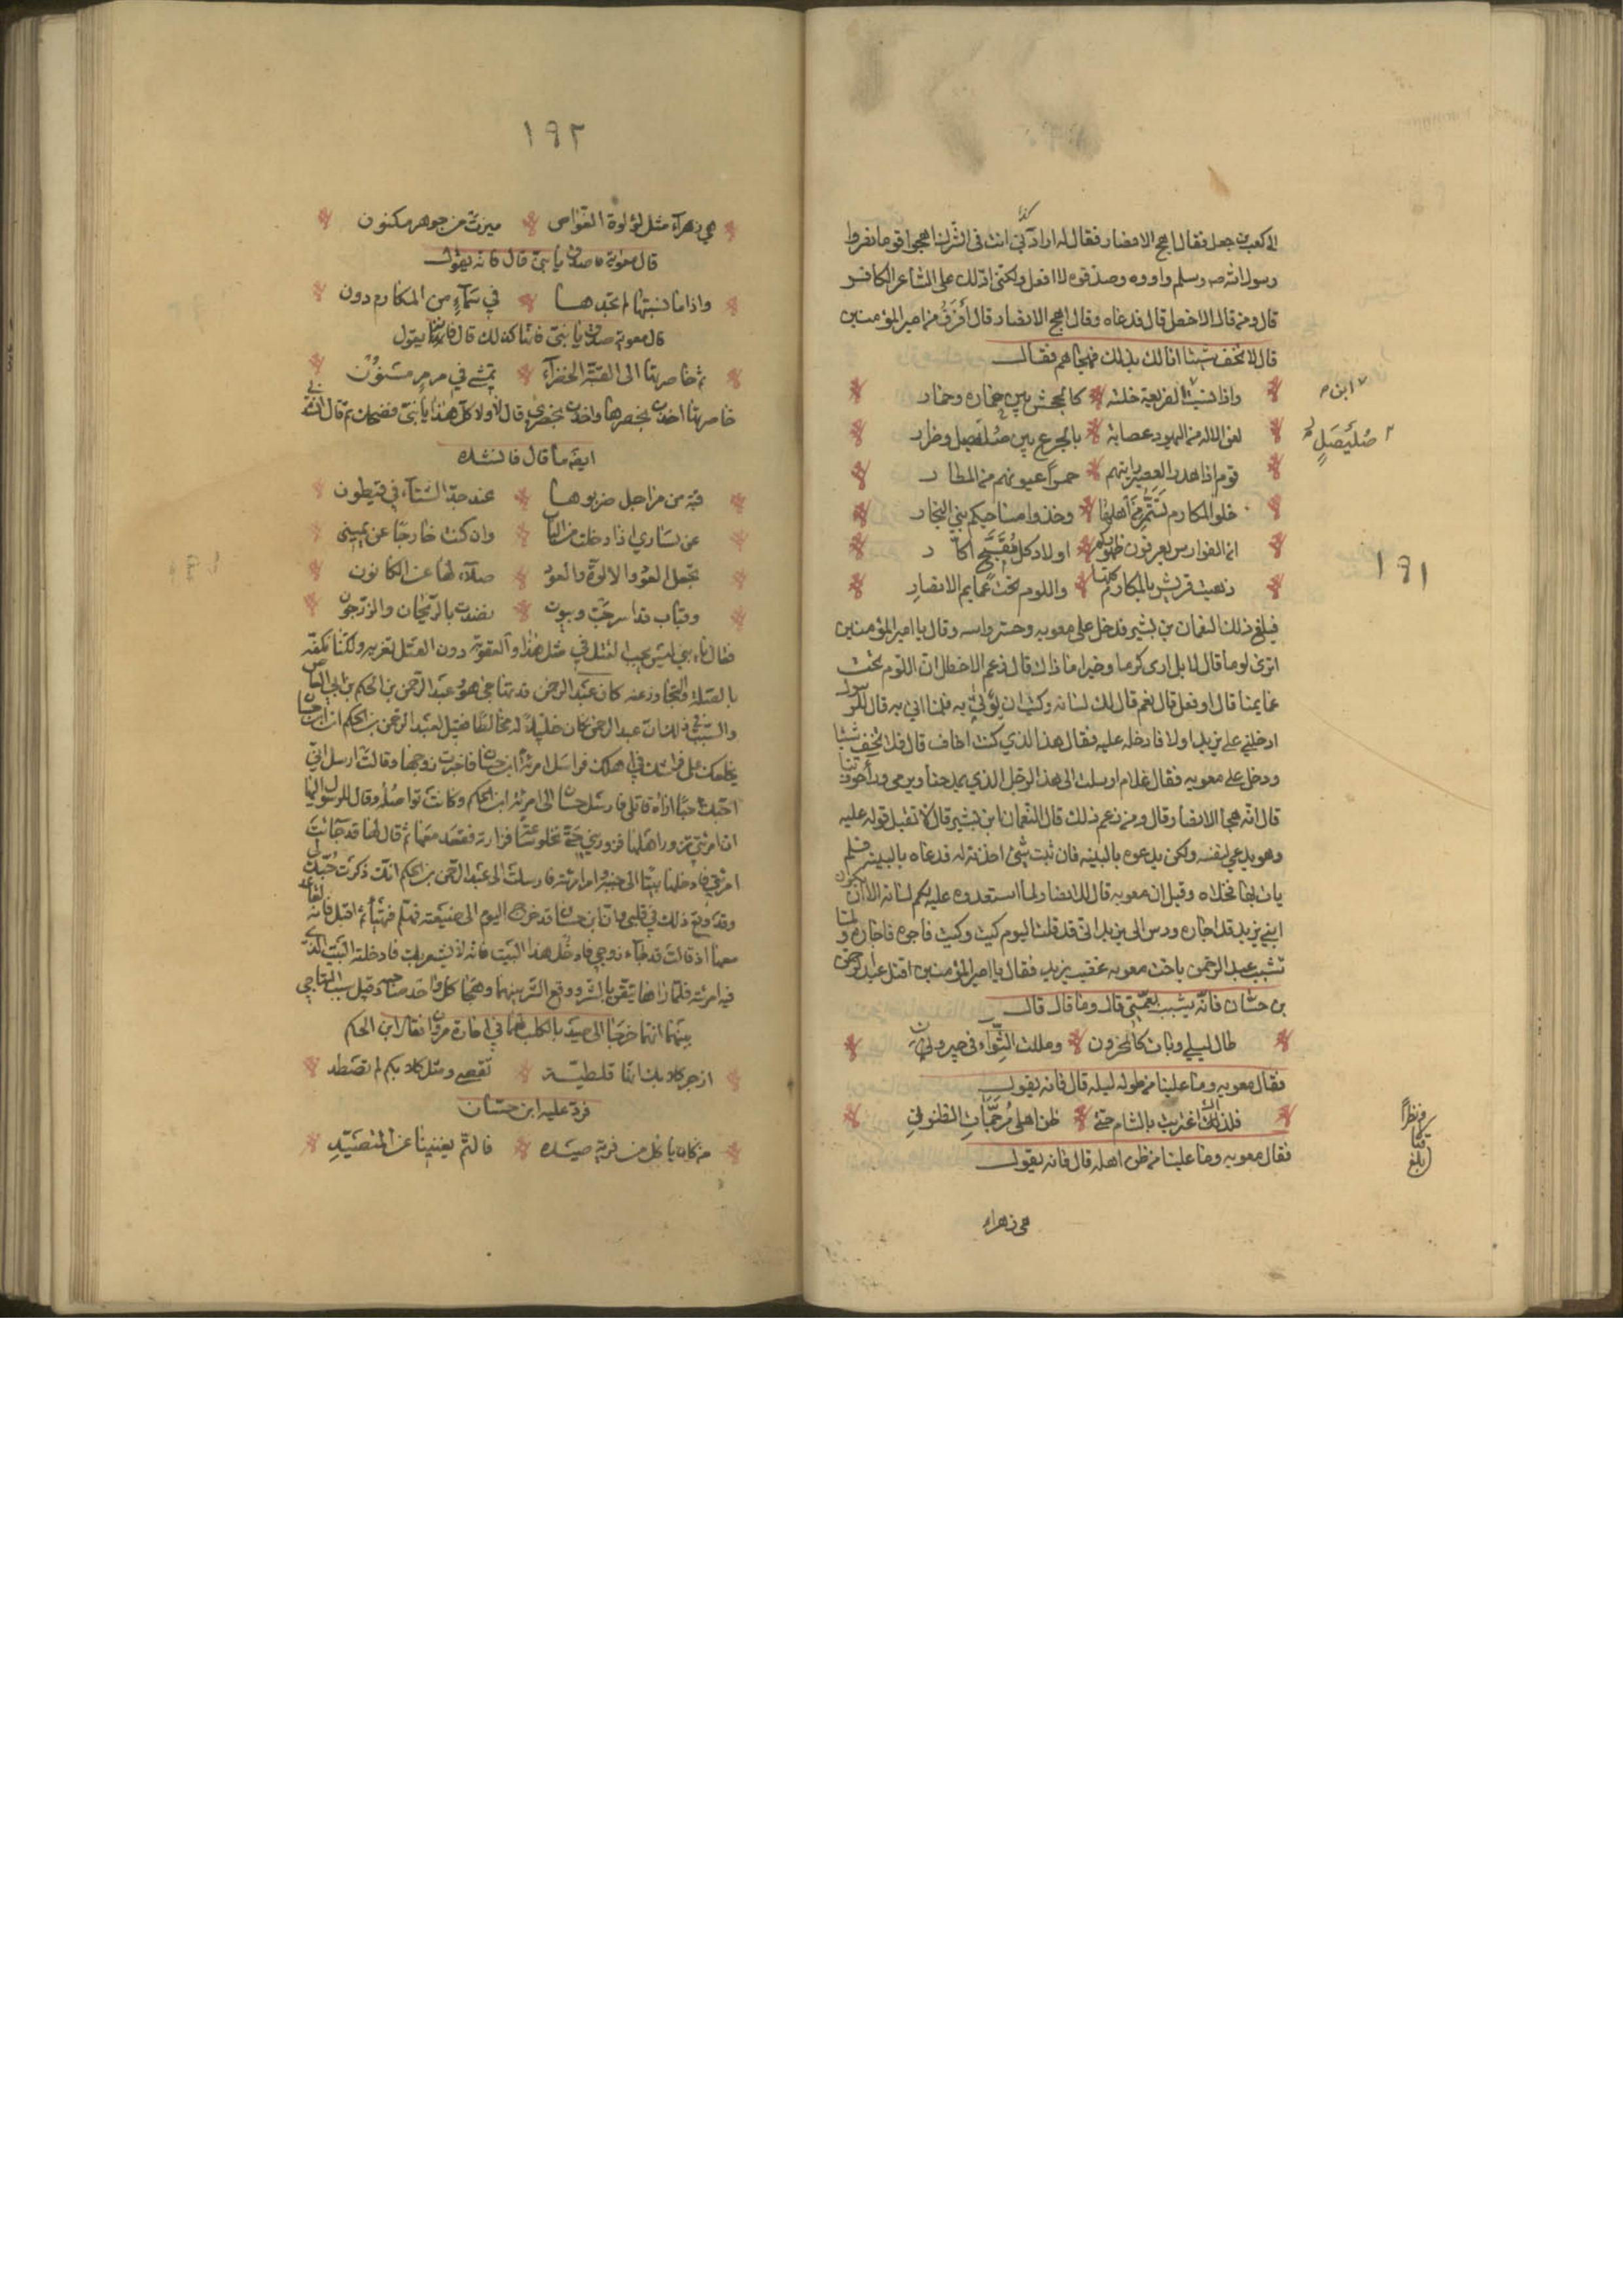 كذا
الى كعب بن جعل فقال اهج الانصار فقال له ارادّي انت في الشرك اهجوا قوما نصروا
رسول الله صه وسلم واووه وصدقوه لا افعل ولكني ادلك على الشاعر الكافر
قال ومن قال الاخطل قال فدعاه وقال اهج الانصار قال أفرَقُ من امير المؤمنين
قال لا تخف شيئا انا لك بذلك فهجاهم فقال
واذا نسبت الفريعة خلته كالجحش بين حماره وحمار
ابن
لعن الاله من اليهود عصابة بالجزع بين صليصل وضرار
صُلَيصَلٍ
قوم اذا هدر العصير رايتهم حمرًا عيونهم من المطار
خلوا المكارم لستم من أهلها وخذوا مساحيكم بني النجار
ان الفوارس يعرفون ظهوركم اولاد كل مُقَبَّح اكّار
ذهبت قريش بالمكارم كلها واللوم تحت عمايم الانصارِ
١٩١
فبلغ ذلك النعمان بن بشير فدخل على معويه وحسر راسه وقال يا امير المؤمنين
اترى لوما قال لا بل ارى كرما وخيرا ما ذاك قال زعم الاخطل ان اللوم تحت
عمايمنا قال اوفعل قال نعم قال لك لسانه وكتب ان يؤتى به فلما اتي به قال للرسول
ادخلني على يزيد اولا فادخله عليه فقال هذا الذي كنت اخاف قال فلا تخف شيئا
ودخل على معويه فقال علام ارسلت الى هذا الرجل الذي يمدحنا ويرمي وراء حوزتنا
قال انه هجا الانصار قال ومن زعم ذلك قال النعمان ابن بشير قال لا تقبل قوله عليه
وهو يدعي لنفسه ولكن يدعوه بالبينه فان ثبت شيئ اخذته له فدعاه بالبينه فلم
يات بها فخلاه وقيل ان معويه قال للانصار لما استعدوه عليه لكم لسانه الا ان يكون
ابني يزيد قد اجاره ودس الى يزيد اني قد قلت اليوم كيت وكيت فاجره فاجاره ولما
تشبب عبد الرحمن باخت معويه غضب يزيد فقال يا امير المؤمنين اقتل عبد الرحمن
بن حسّان فانّه يشبب بعمّتي قال وما قال قال
طال ليلي وبات كالمحزون ومللت الثِّوَاء في جيرون
فقال معويه وما علينا من طول ليله قال فانه يقول
فلذاك اغتربت بالشام حتى ظن اهلي مُرَجَّمَاتِ الظنونِ
فقال معويه وما علينا من ظن اهله قال فانه يقول
بلغ
هي زهراء
١٩٢
هي زهرآء مثل لؤلؤة الغوّاص ميزت من جوهر مكنون
قال معوية صدق يا بنيّ قال فانه يقول
واذا ما نسبتها لم تجدها في سَمآءٍ من المكارم دون
قال معويه صدق يا بنيّ فانّها كذلك قال فانه يقول
ثم خاصرتها الى القبّة الخضرآء تمشي في مرمرٍ مسنون
خاصرتها اخذت بخصرها واخذت بخصري قال لا ولا كلّ هذا يا بنيّ فضحك ثم قال انشدني
ايضا ما قال فانشده
قبة من مراجل ضربوها عند حدّ الشتآء في قيطون
عن يساري اذا دخلت من الباب وان كنت خارجًا عن يميني
تجعل العود والالوّة والعود صلآء لها عن الكانون
وقباب قد اسرجَت وبيوت نضدت بالريحان والزرجون
فقال يا بني ليس يجب القتل في مثل هذا والعقوبة دون القتل تغريه ولكنّا نكفّه
بالصلة والتجاوز عنه كان عبد الرحمن قد تهاجى هو وعبد الرحمن بن الحكم بن ابي العاص
والسبب في ذلك ان عبد الرحمن كان خليلًا له مخالطا فقيل لعبد الرحمن بن الحكم ان ابن حسّان
يخلفك في اهلك فراسل امرءة ابن حسان فاخبرت زوجها وقالت ارسل اليّ
احبّك حبّا اراه قاتلي فارسل حسان الى امرئة ابن الحكم وكانت تواصله وقال للرسول اليها
ان امرئتي تزور اهلها فزوريني حتى نخلو عشا فزارته فقعد معها ثم قال لها قد جائت
امرئتي فادخلها بيتا الى جنبه وامر امرئته فارسلت الى عبد الرحمن بن الحكم انك ذكرت حُبّك لي
وقد وقع ذلك في قلبي وان ابن حسان قد خرج اليوم الى ضيعته فهلم فتهيّأ ثم اقبل فانه لقاعد
معها اذ قالت قد جاء زوجي فادخل هذا البيت فانه لا يشعر بك فادخلته البيت الذي
فيه امرئته فلما راها تيقن بالشر ووقع الشر بينهما وهجا كل واحد صاحبه وقيل سبب التهاجي
بينهما انهما خرجا الى صيد باكلب لهما في امارة مروان فقال ابن الحكم
ازجر كلابك انها قلطيّة بقعٌ ومثل كلابكم لم تصطد
فردّ عليه ابن حسّان
من كان ياكل من فريسة صيده فالتمر يغنينا عن المتصيّدِ